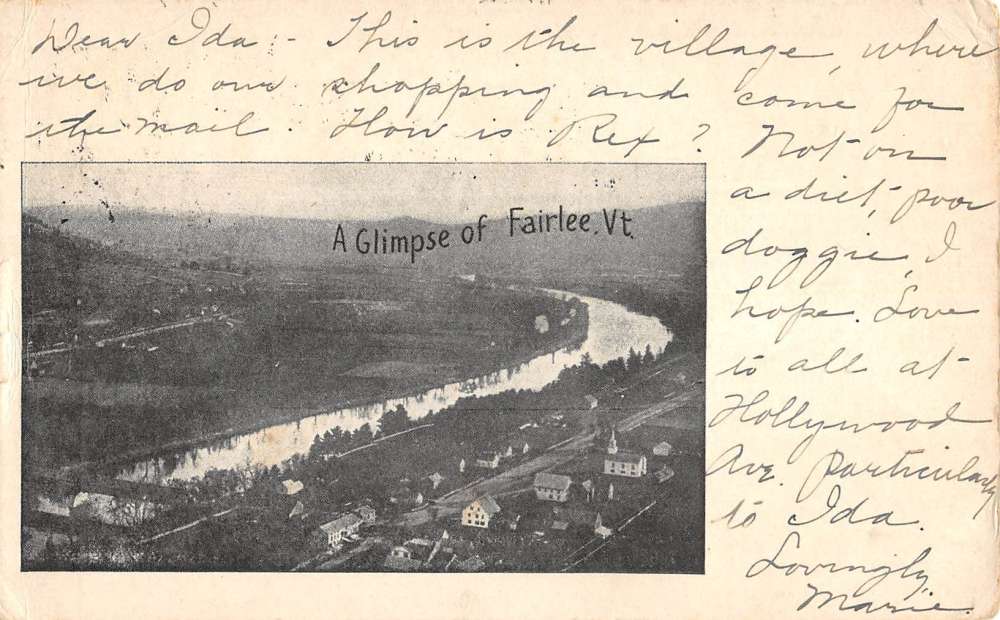 Dear Ida:- This is the village, where
we do our shopping and come for
the mail. How is Rex? Not on
a diet, poor
doggie, I
hope. Love
to all at
Hollywood
Ave. Particularly
to Ida.
Lovingly,
Marie.
A Glimpse of Fairlee, Vt.